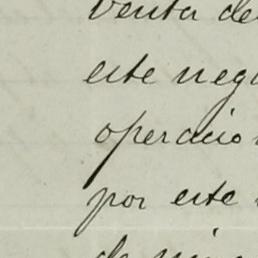 venta de
este nego
operacion
por este
de mi